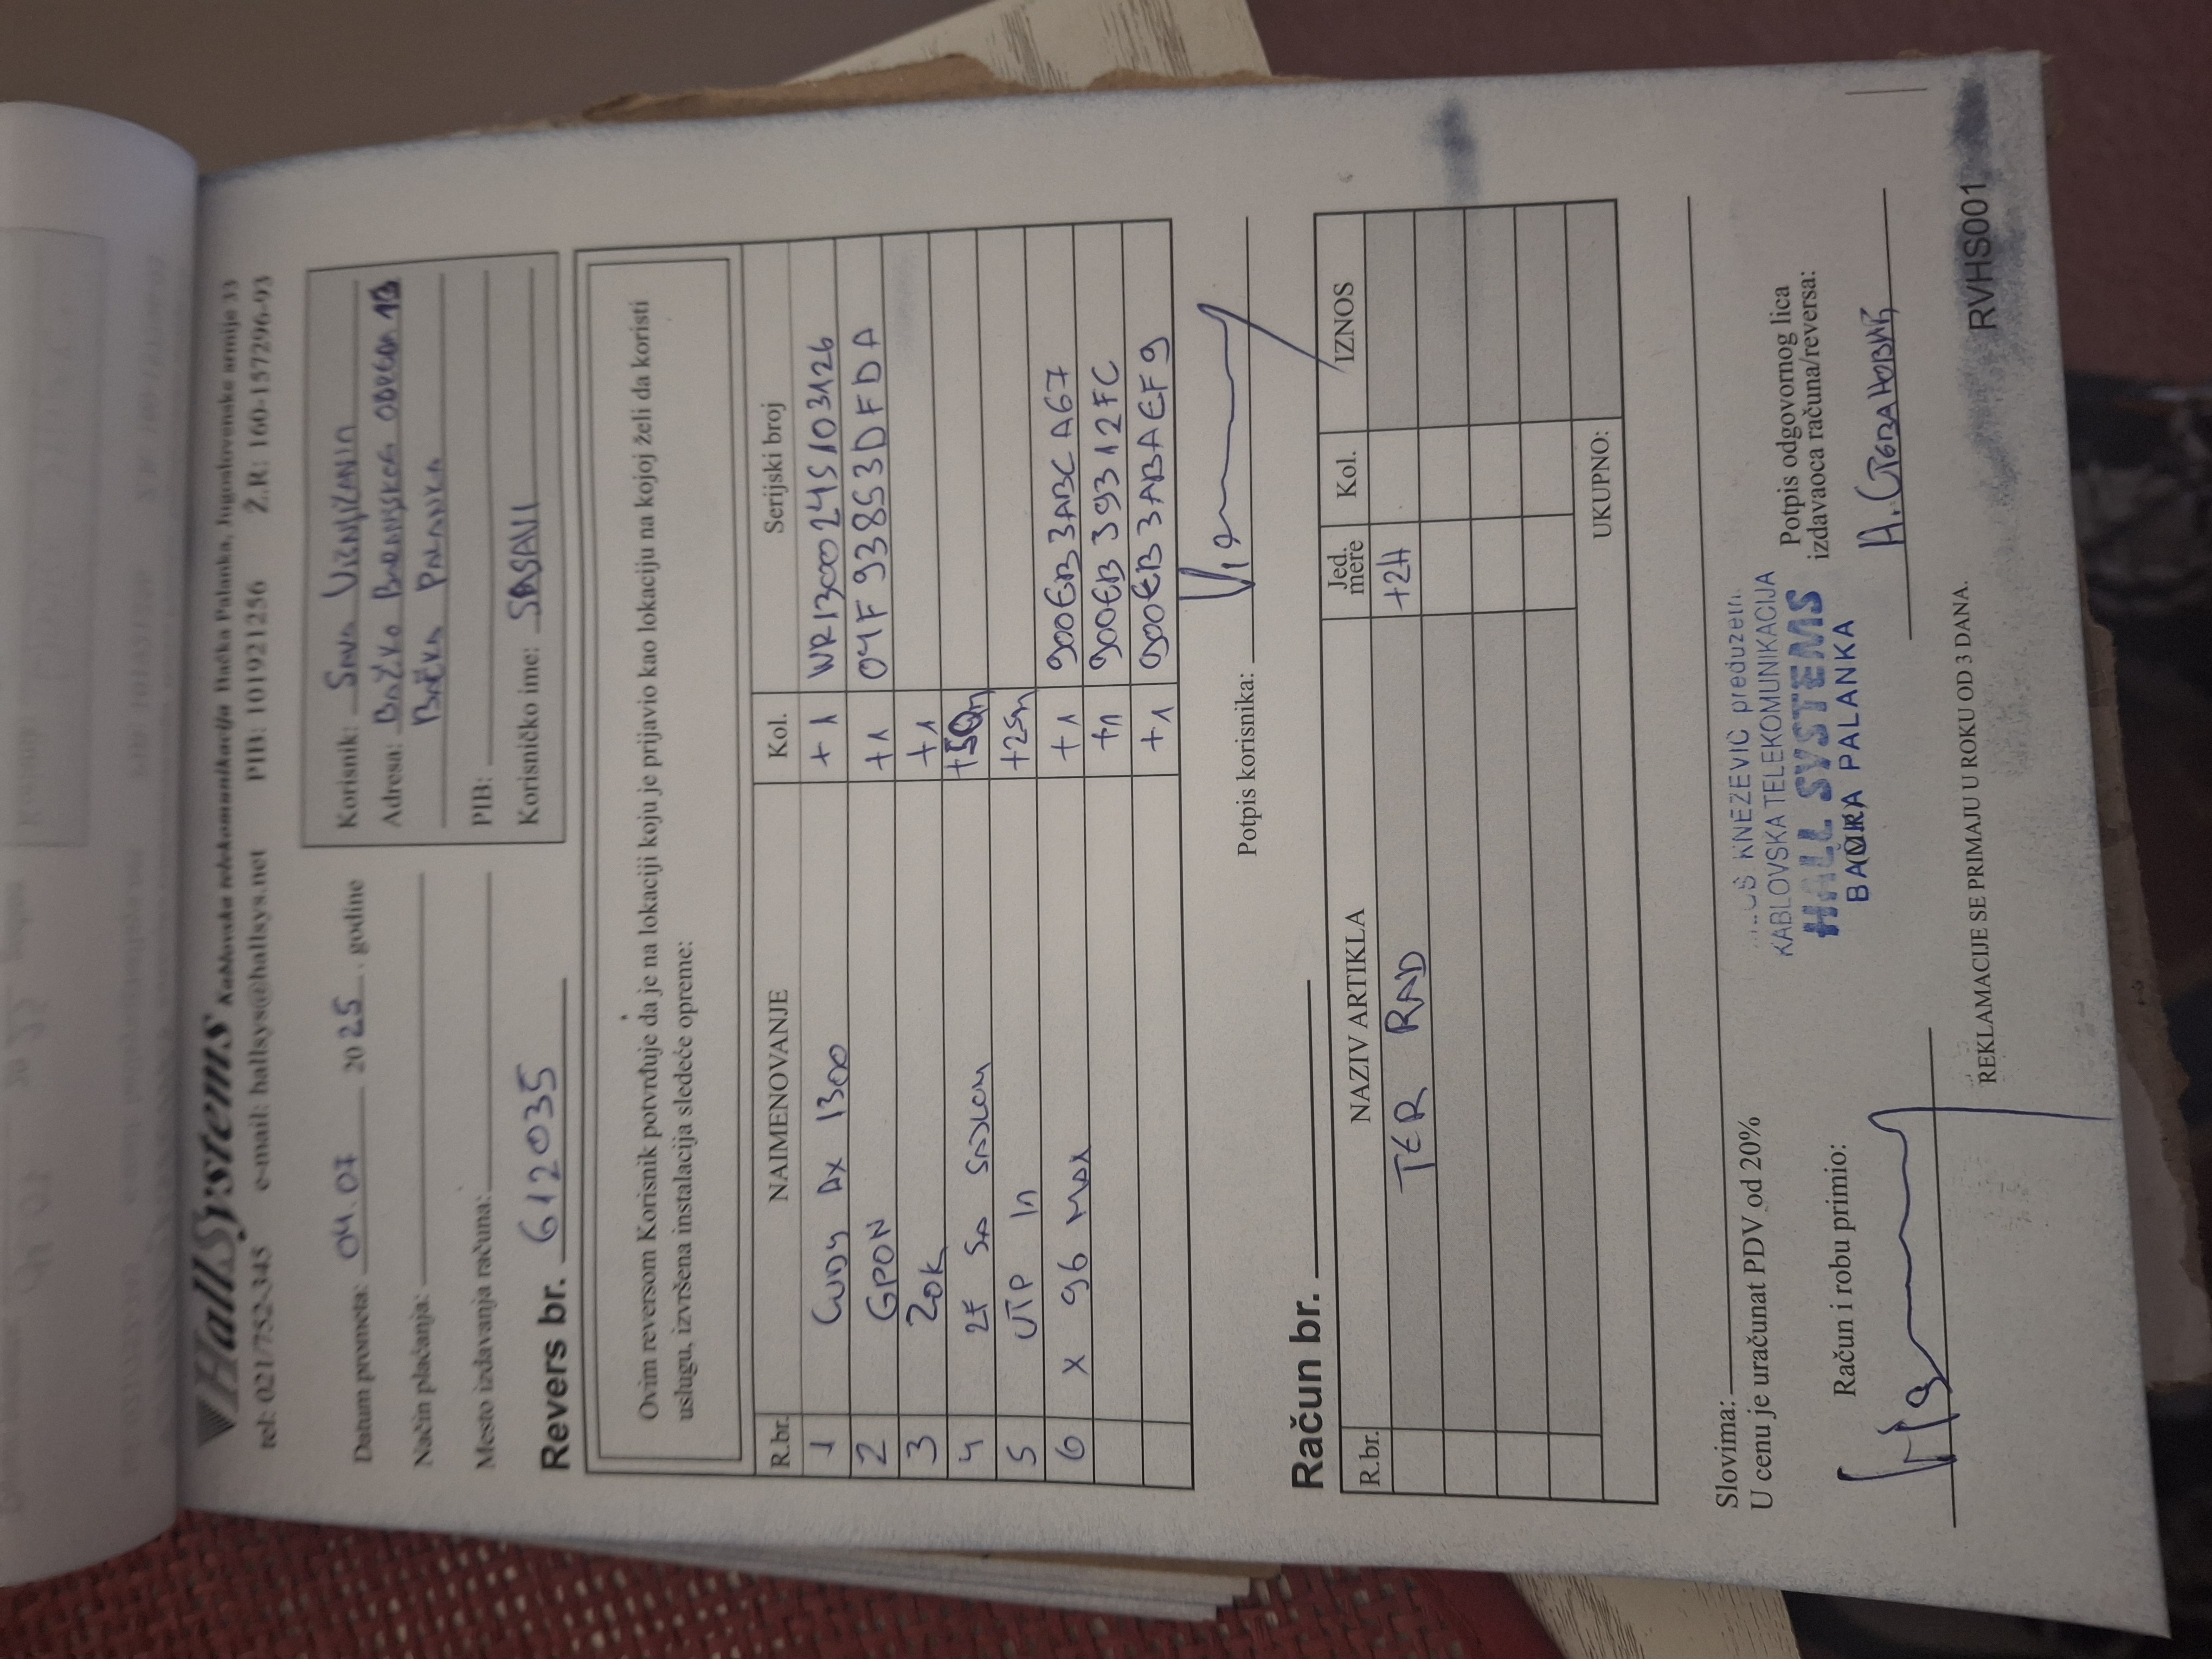 HallSystems Kablovska telekomunikacija Bačka Palanka, Jugoslovenske armije 33
tel: 021/752-345 e-mail: hallsys@hallsys.net PIB: 101921256 Ž.R: 160-157296-93
Datum prometa: 04.07 2025. godine
Način plaćanja:
Mesto izdavanja računa:
Revers br. 612035
Korisnik: Sava
Adresa:
Bačka Palanka
PIB:
Korisničko ime:
Ovim reversom Korisnik potvrđuje da je na lokaciji koju je prijavio kao lokaciju na kojoj želi da koristi
uslugu, izvršena instalacija sledeće opreme:
R.br. NAIMENOVANJE Kol. Serijski broj
1 Cudy AX 1300 +1 WR13000245103126
2 GPON +1 04F93853DFDA
3 ZOK +1
4 2F SA +50m
5 UTP In +25m
6 X 96 MAX +1 900EB3ABCA67
+1 900EB39312FC
+1 900EB3ABAEF9
Potpis korisnika:
Račun br.
R.br. NAZIV ARTIKLA Jed. mere Kol. IZNOS
TER RAD +2H
UKUPNO:
Slovima:
U cenu je uračunat PDV od 20%
KNEZEVIĆ preduzetn.
KABLOVSKA TELEKOMUNIKACIJA
HALL SYSTEMS
PALANKA
Potpis odgovornog lica
izdavaoca računa/reversa:
Račun i robu primio:
REKLAMACIJE SE PRIMAJU U ROKU OD 3 DANA.
RVHS001